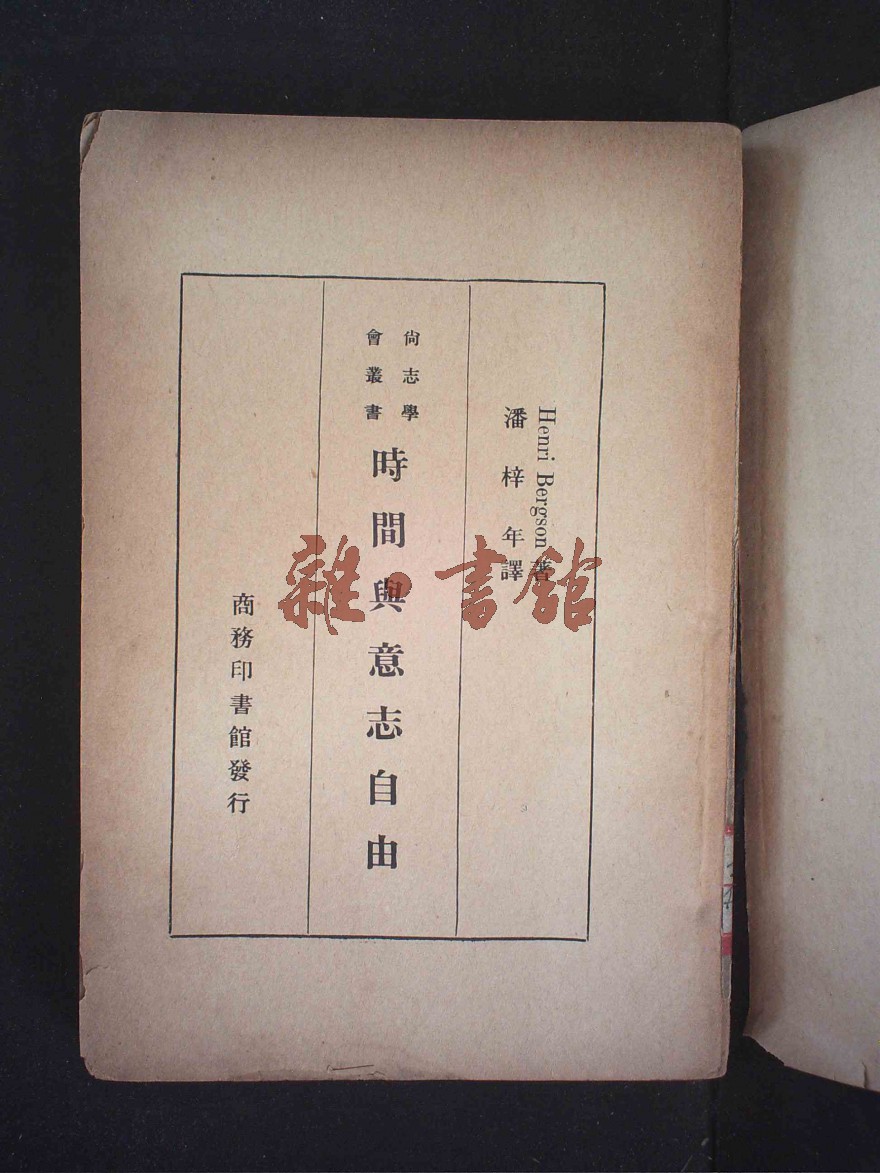 Henri Bergson 著
潘梓年譯
尙志學
會叢書
時間與意志自由
商務印書館發行
雜·書館